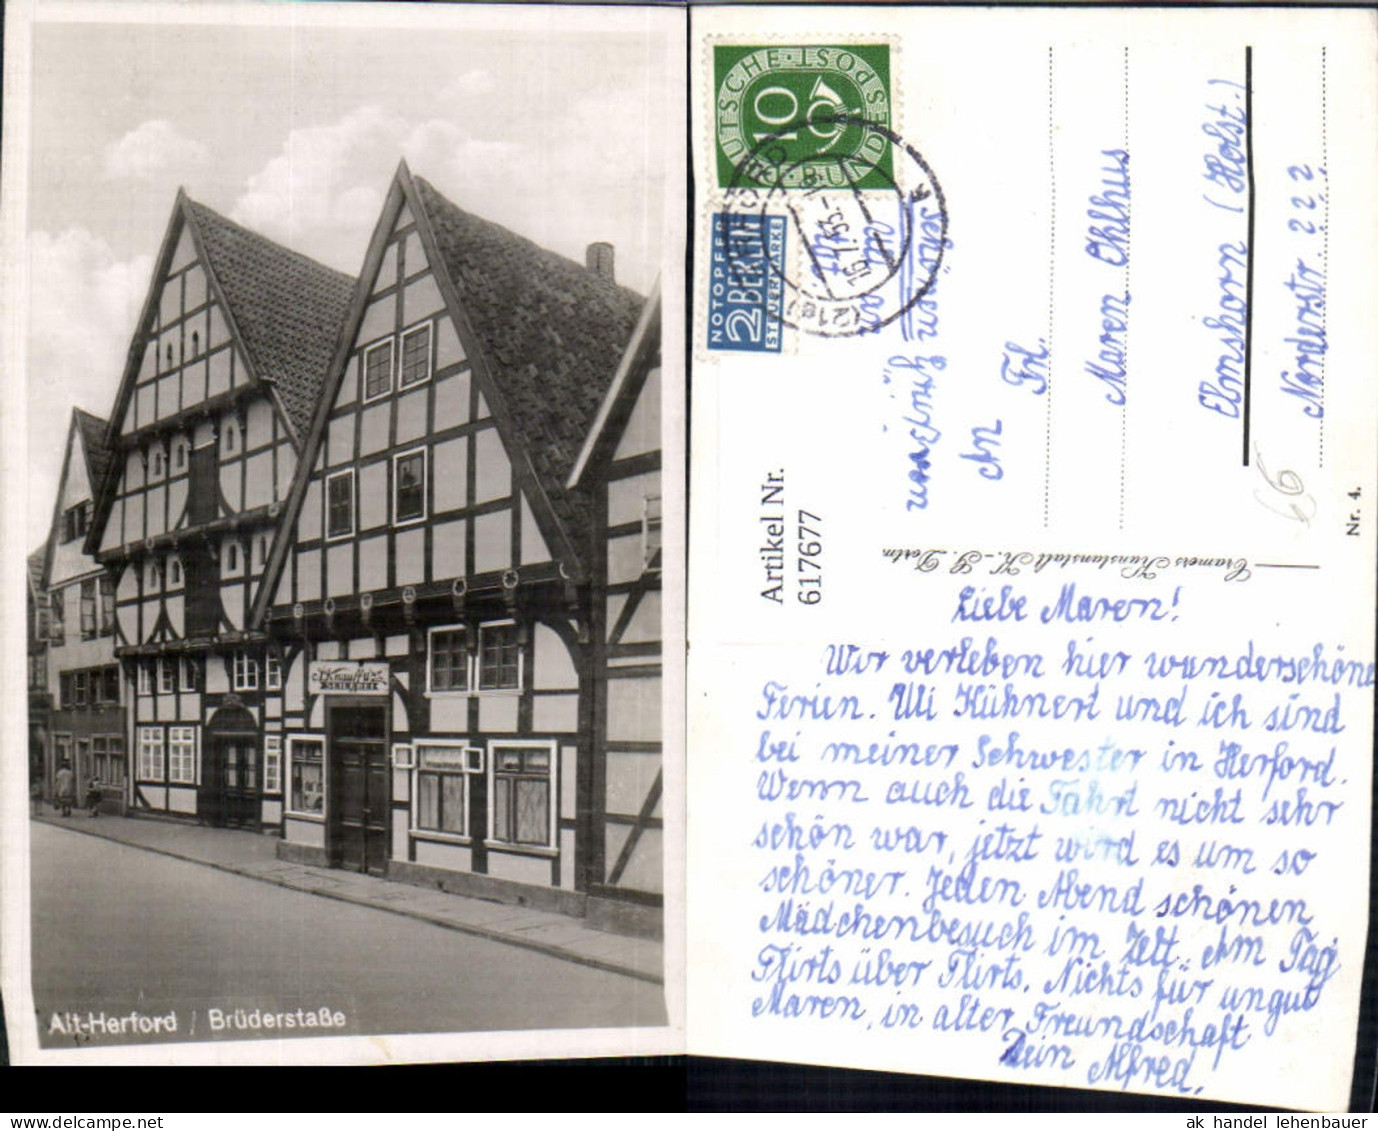 Knauff
SEILEREI
Alt-Herford / Brüderstaße
DEUTSCHE · POST · BUNDES
10
NOTOPFER
2 BERLIN
STEUERMARKE
HERFORD
16.7.53.-
(21a)
k
schönen
An
Frl.
Maren Ohlhus
Elmshorn (Holst.)
Norderstr. 222
66
Artikel Nr.
617677
Cramers Kunstanstalt K.-G. Dortm
Nr. 4.
Liebe Maren!
Wir verleben hier wunderschöne
Ferien. Uli Kühnert und ich sind
bei meiner Schwester in Herford.
Wenn auch die Fahrt nicht sehr
schön war, jetzt wird es um so
schöner. Jeden Abend schönen
Mädchenbesuch im Zelt. Am Tag
Flirts über Flirts. Nichts für ungut
Maren, in alter Freundschaft
Dein Alfred.
ak handel lehenbauer